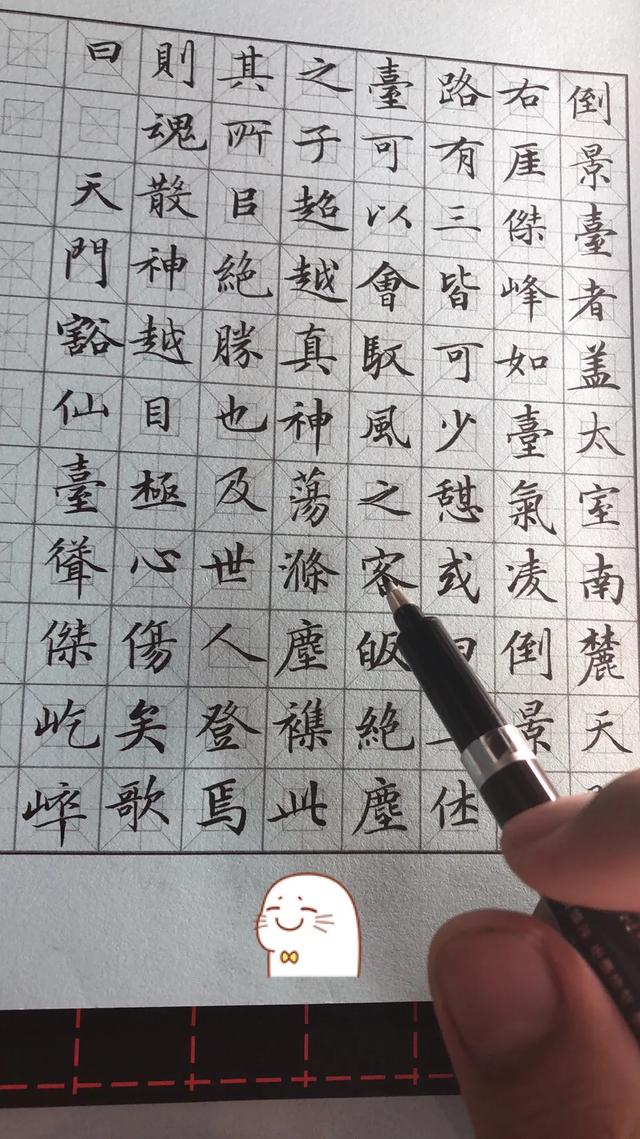 倒景臺者盖太室南麓天
右厓傑峰如臺氣凌倒景
路有三皆可少憩或曰休
臺可以會馭風之客皈絶塵
之子超越真神蕩滌塵襍此
其所㠯絶勝也及世人登焉
則魂散神越目極心傷矣歌
曰 天門豁仙臺聳傑屹崒